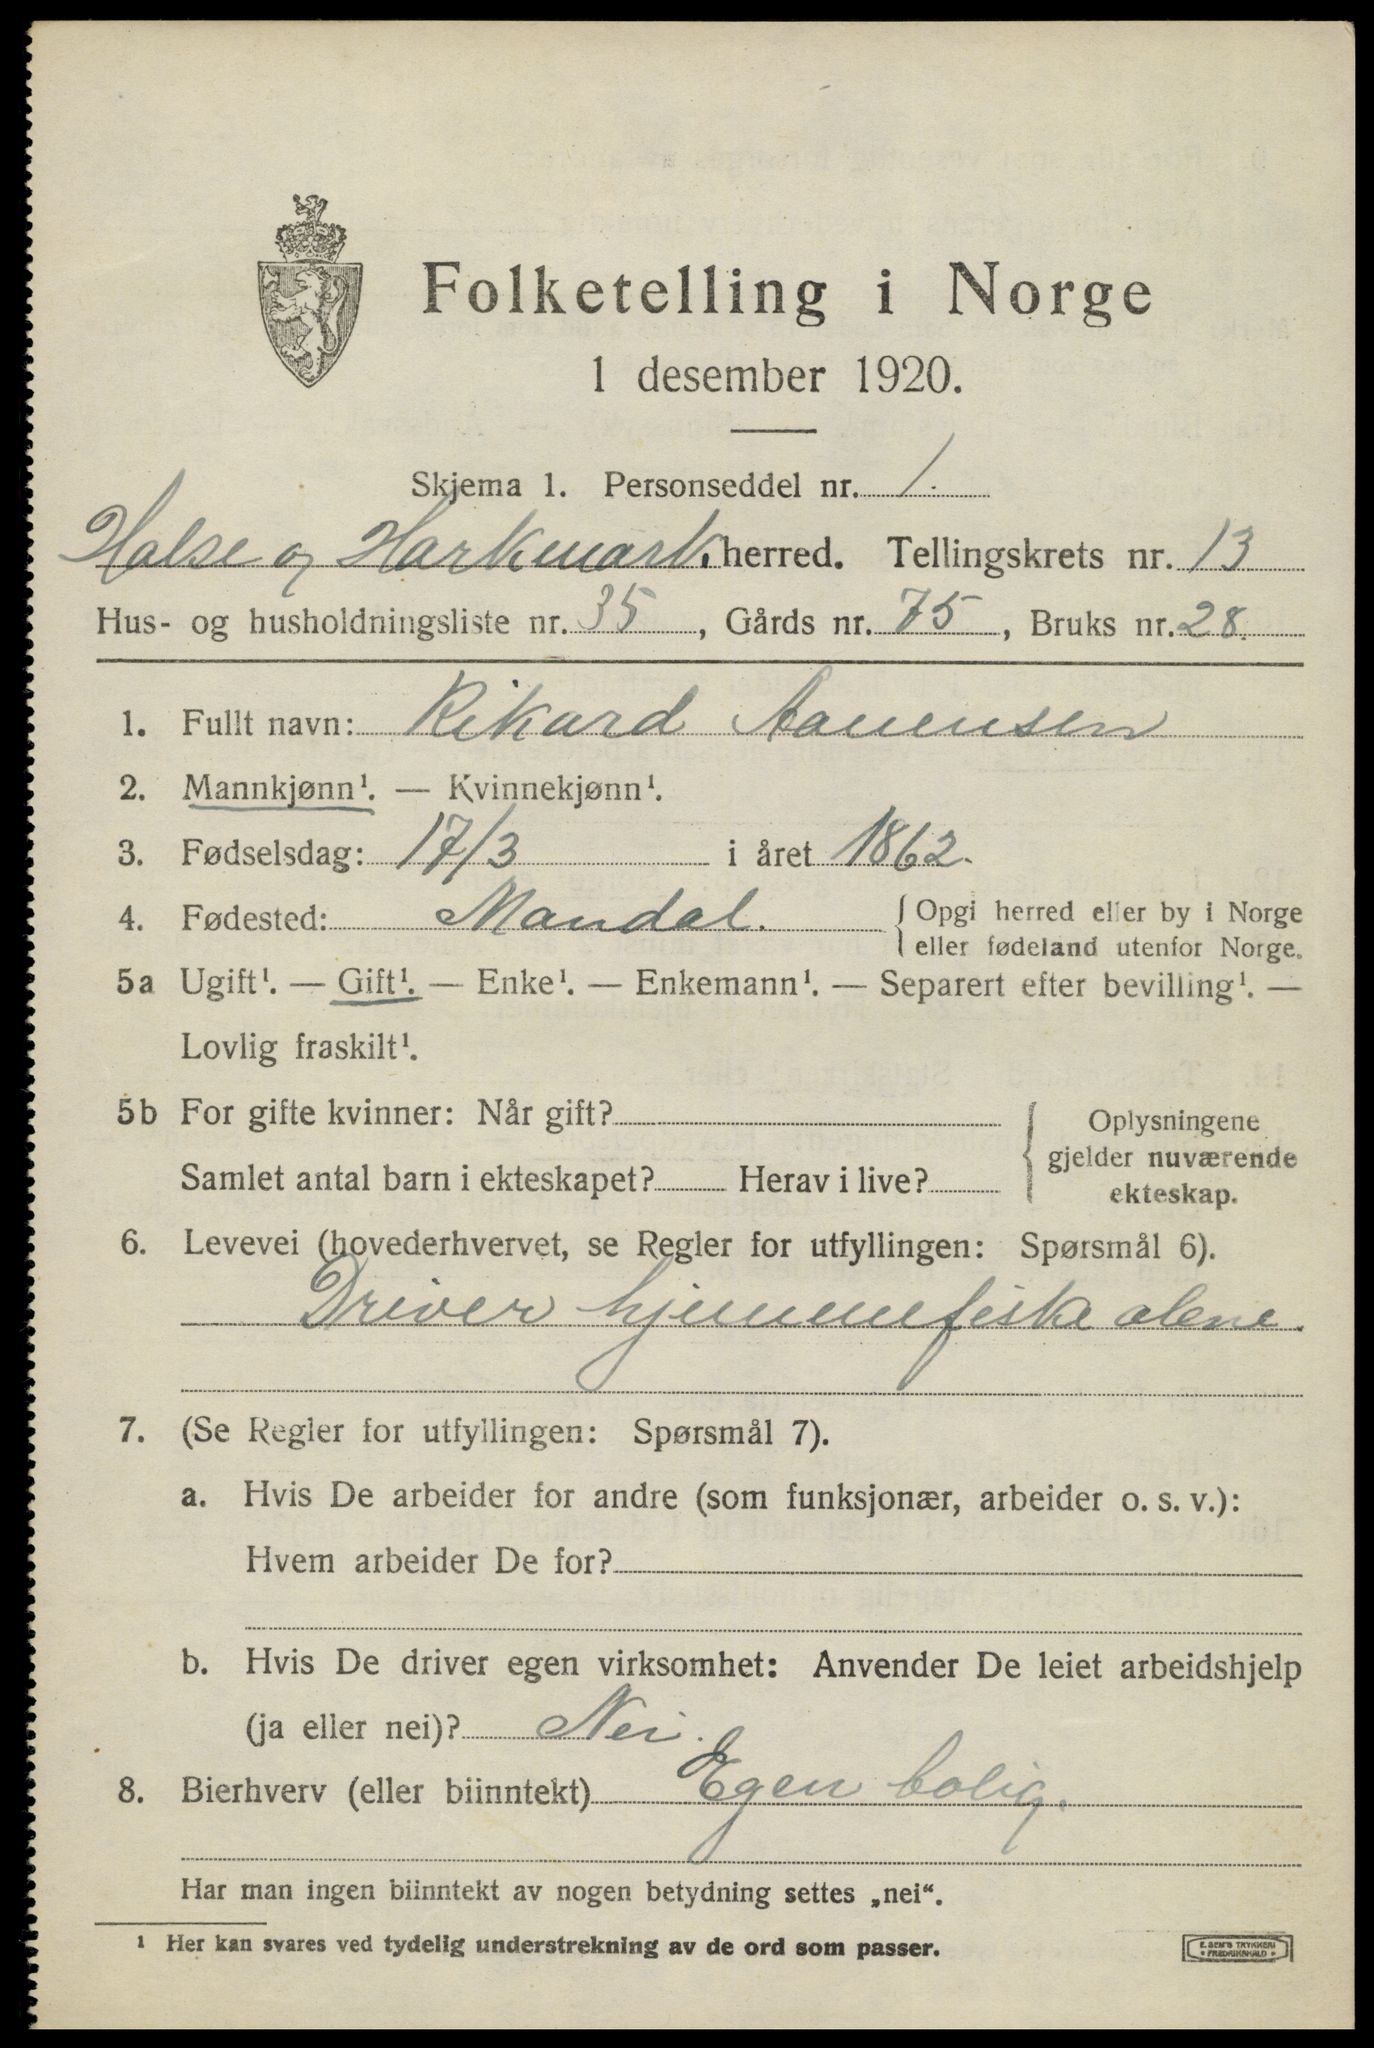 Folketelling i Norge
1 desember 1920.
Skjema 1. Personseddel nr. 1.
Halse og Harkmark. herred. Tellingskrets nr. 13
Hus- og husholdningsliste nr. 35, Gårds nr. 75, Bruks nr. 28.
1. Fullt navn: Rikard Aanensen
2. Mannkjønn¹. — Kvinnekjønn¹.
3. Fødselsdag: 17/3 i året 1862.
4. Fødested: Mandal. { Opgi herred eller by i Norge
eller fødeland utenfor Norge.
5a Ugift¹. — Gift¹. — Enke¹. — Enkemann¹. — Separert efter bevilling¹. —
Lovlig fraskilt¹.
5b For gifte kvinner: Når gift?
Samlet antal barn i ekteskapet? Herav i live?
{ Oplysningene
gjelder nuværende
ekteskap.
6. Levevei (hovederhvervet, se Regler for utfyllingen: Spørsmål 6).
Driver hjemmefiske alene.
7. (Se Regler for utfyllingen: Spørsmål 7).
a. Hvis De arbeider for andre (som funksjonær, arbeider o. s. v.):
Hvem arbeider De for?
b. Hvis De driver egen virksomhet: Anvender De leiet arbeidshjelp
(ja eller nei)? Nei.
8. Bierhverv (eller biinntekt) Egen bolig.
Har man ingen biinntekt av nogen betydning settes „nei“.
¹ Her kan svares ved tydelig understrekning av de ord som passer.
E. SEM'S TRYKKERI
• FREDRIKSHALD •